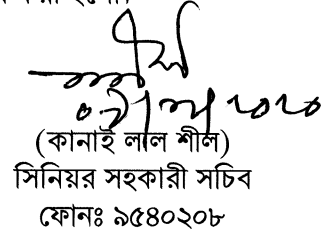 (কানাই লাল শীল)
সিনিয়র সহকারী সচিব
ফোনঃ ৯৫৪০২০৮